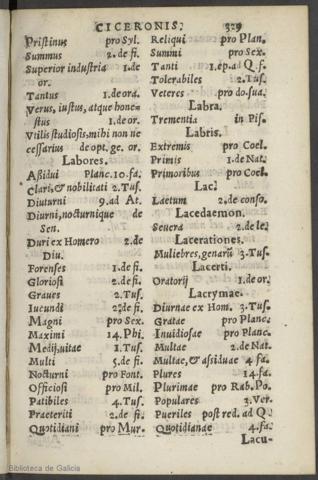 CICERONIS. 329
Pristinus pro Syl.
Summus 2. de fi.
Superior industria 1. de
or.
Tantus 1. de ora.
Verus, iustus, atque hone-
stus 1. de or.
Vtilis studiosis, mihi non ne
cessarius de opt. ge. or.
Labores.
Assidui Planc. 10. fa.
Clari, & nobilitati 2. Tus.
Diuturni 9. ad At.
Diurni, nocturnique de
Sen.
Duri ex Homero 2. de
Diu.
Forenses 1. de fi.
Gloriosi 2. de fi.
Graues 2. Tus.
Iucundi 2. de fi.
Magni pro Sex.
Maximi 14. Phi.
Medij, uitae 1. Tus.
Multi 5. de fi.
Nocturni pro Font.
Officiosi pro Mil.
Patibiles 4. Tus.
Praeteriti 2. de fi.
Quotidiani pro Mur.
Reliqui pro Plan.
Summi pro Sex.
Tanti 1. ep. ad Q. f.
Tolerabiles 2. Tus.
Veteres pro do. sua.
Labra.
Trementia in Pis.
Labris.
Extremis pro Coel.
Primis 1. de Nat.
Primoribus pro Coel.
Lac.
Laetum 2. de conso.
Lacedaemon.
Seuera 2. de le.
Lacerationes.
Muliebres, genarũ 3. Tus.
Lacerti.
Oratorij 1. de or.
Lacrymae.
Diurnae ex Hom. 3. Tus.
Gratae pro Planc.
Inuidiosae pro Planc.
Multae 2. de Nat.
Multae, & assiduae 4. fa.
Plures 14. fa.
Plurimae pro Rab. Po.
Populares 3. Ver.
Pueriles post red. ad Q.
Quotidianae 4. fa.
Lacu-
Biblioteca de Galicia